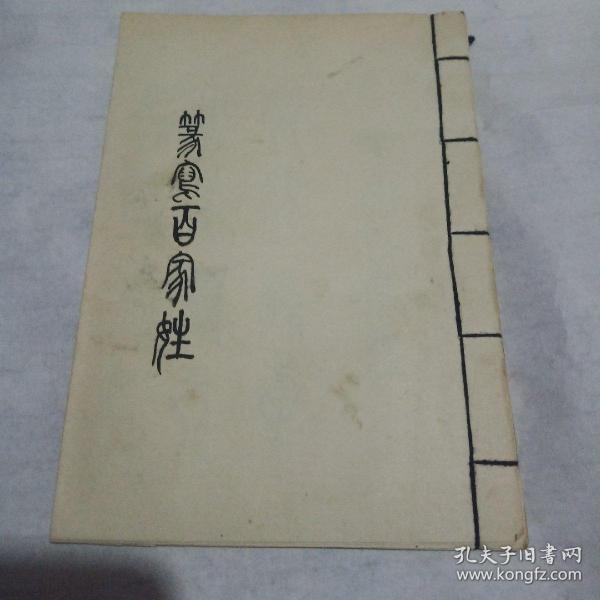 篆寫百家姓
孔夫子旧书网
www.kongfz.com